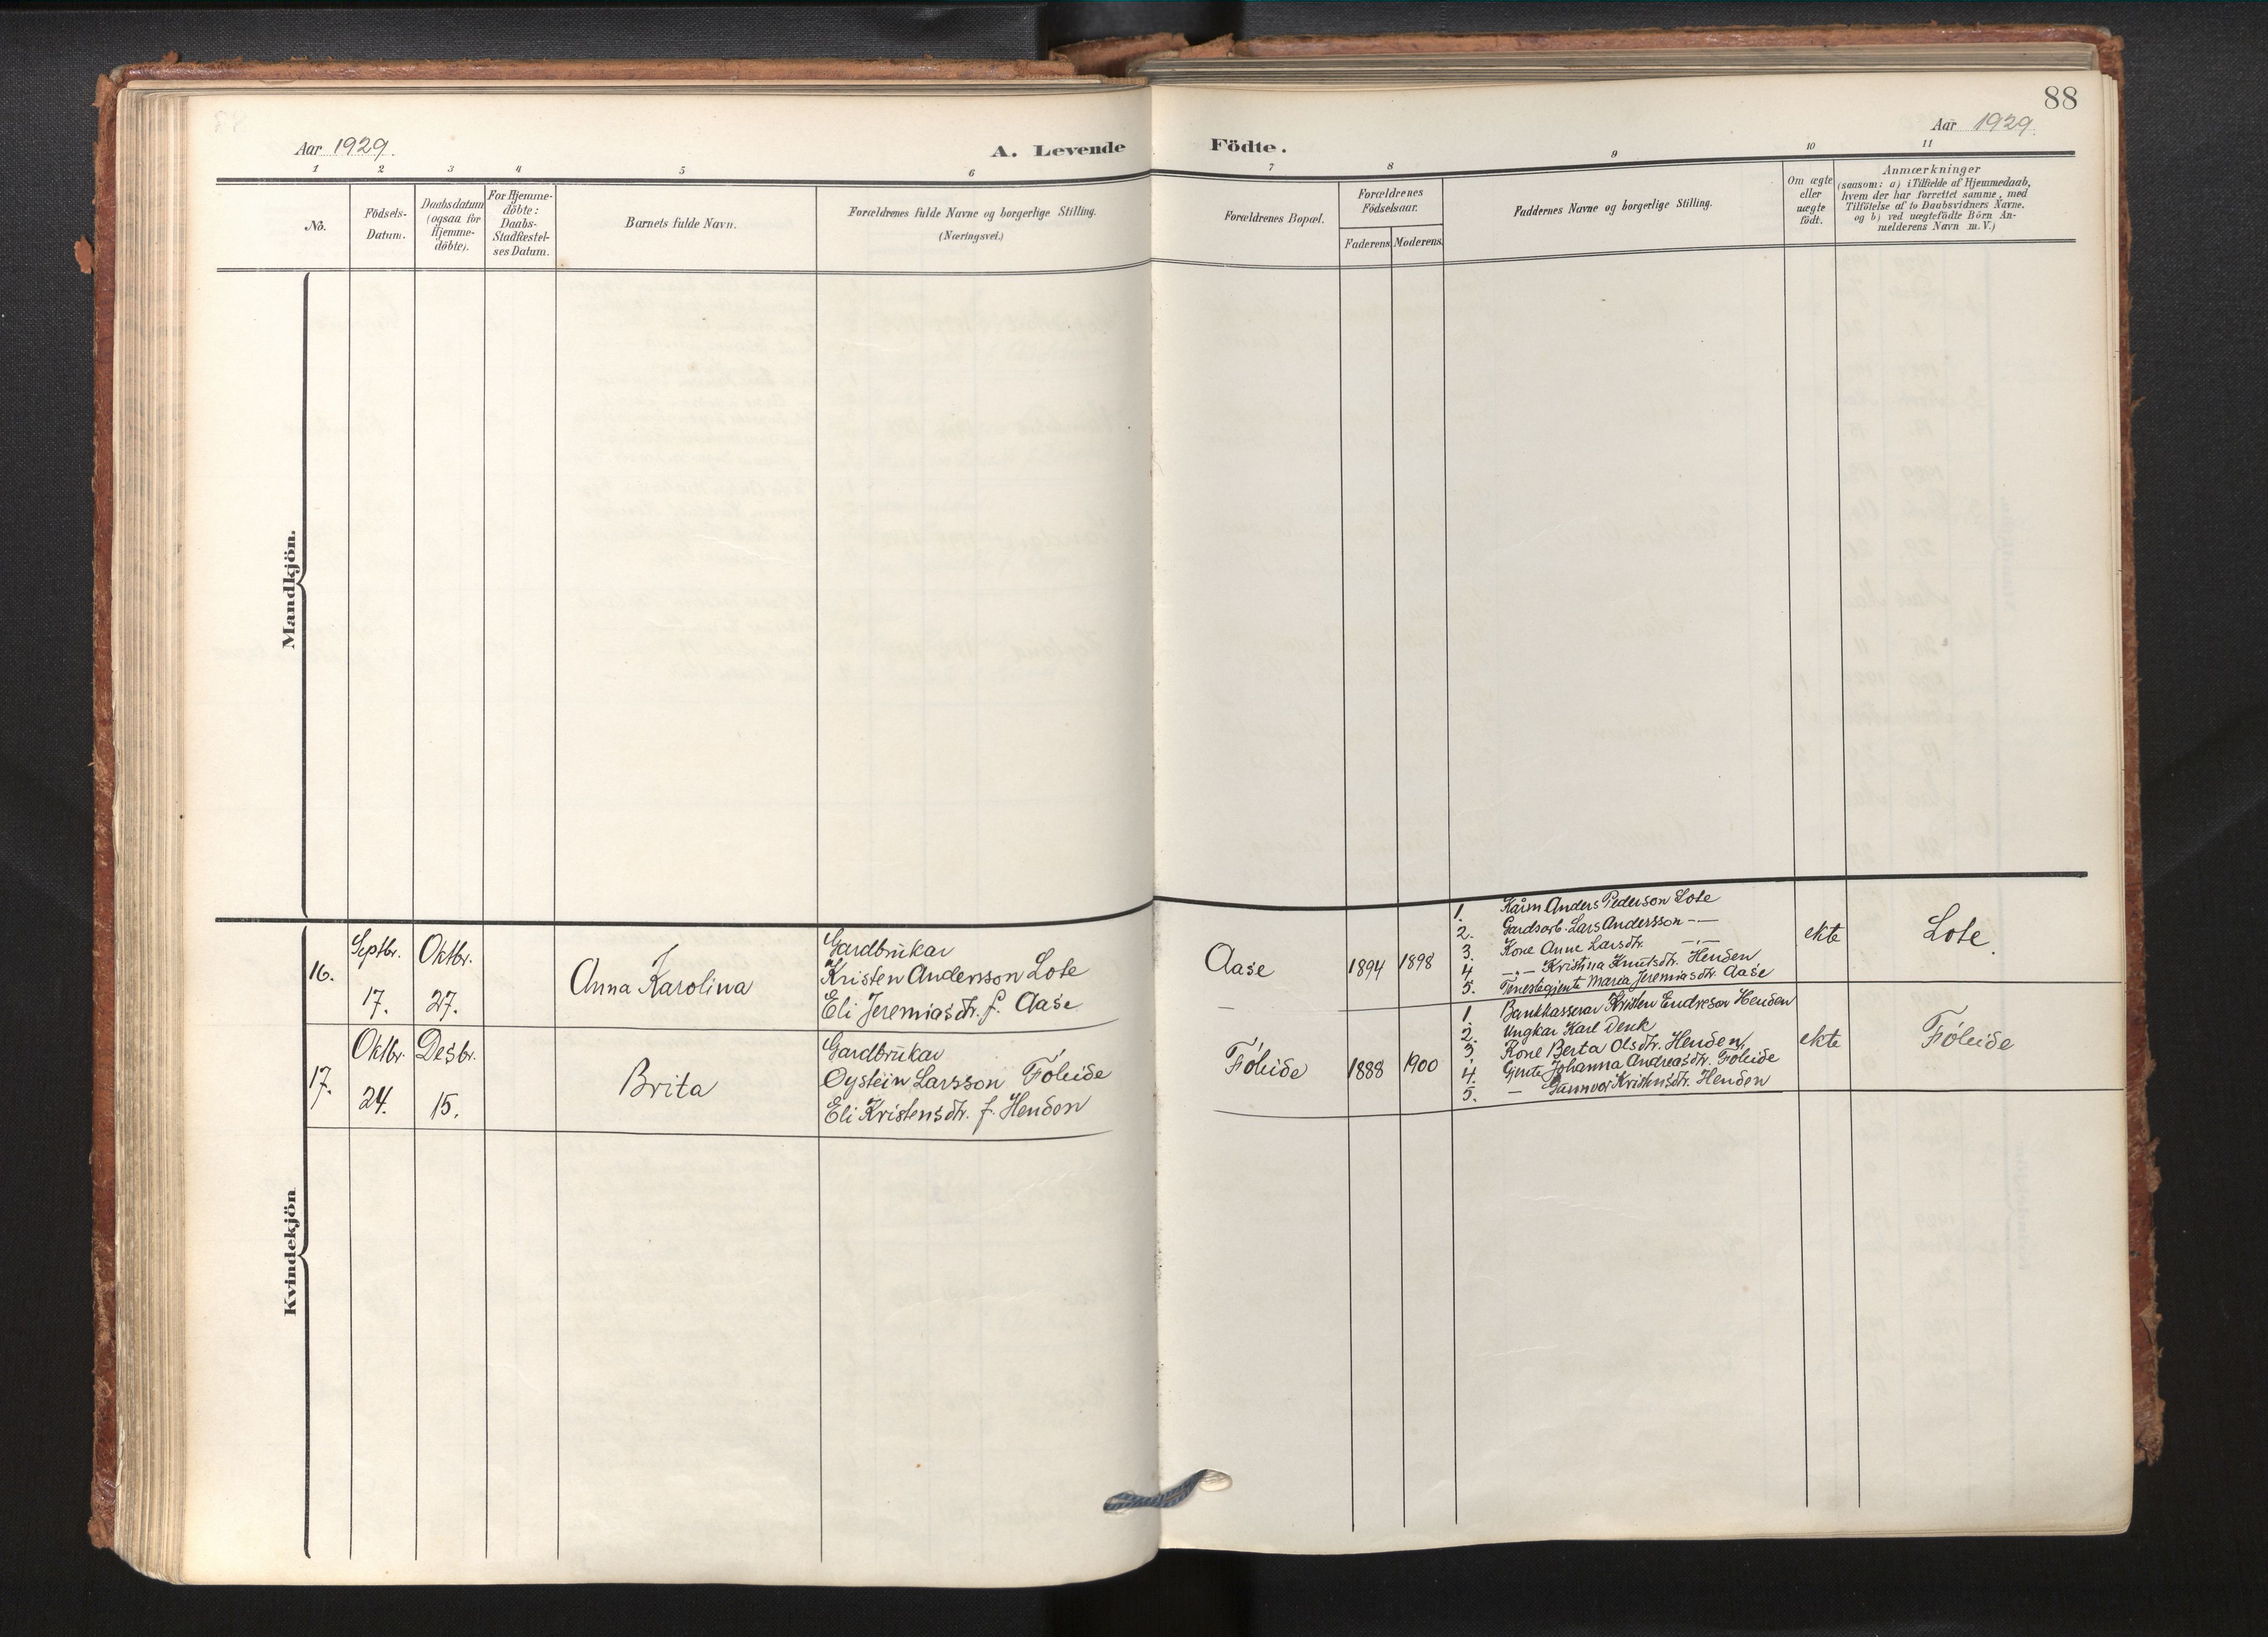 88
Aar 1929.
A. Levende Födte.
Aar 1929.
1 2 3 4 5 6 7 8 9 10 11
No.
Födsels-
Datum.
Daabsdatum
(ogsaa for
Hjemme-
döbte).
For Hjemme-
döbte:
Daabs-
Stadfæstel-
ses Datum.
Barnets fulde Navn.
Forældrenes fulde Navne og borgerlige Stilling.
(Næringsvei.)
Forældrenes Bopæl.
Forældrenes
Födselsaar.
Faderens. Moderens.
Faddernes Navne og borgerlige Stilling.
Om ægte
eller
uægte
födt.
Anmærkninger
(saasom: a) i Tilfælde af Hjemmedaab,
hvem der har forrettet samme, med
Tilföielse af to Daabsvidners Navne,
og b) ved uægtefödte Börn An-
melderens Navn m. V.)
Mandkjön.
Kvindekjön
16.
Septbr.
17.
Oktbr.
27.
Anna Karolina
Gardbrukar
Kristen Andersson Lote
Eli Jeremiasdtr. f. Aase
Aase
1894 1898
1. Kårm. Anders Pederson Lote
2. Gardsarb. Lars Andersson -"-
3. Kone Anne Larsdtr. -"-
4 -"- Kristina Knutsdtr. Henden
5. Tenestegjente Maria Jeremiasdtr. Aase
ekte
Lote.
17.
Oktbr.
24.
Desbr.
15.
Brita
Gardbrukar
Oystein Larsson Föleide
Eli Kristensdtr. f. Henden
Föleide
1888 1900
1. Bankkasserar Kristen Endreson Henden
2. Ungkar Karl Denk
3. Kone Berta Olsdtr. Henden
4. Gjente Johanna Andreasdtr. Föleide
5. — Gunnvor Kristensdtr. Henden
ekte
Föleide